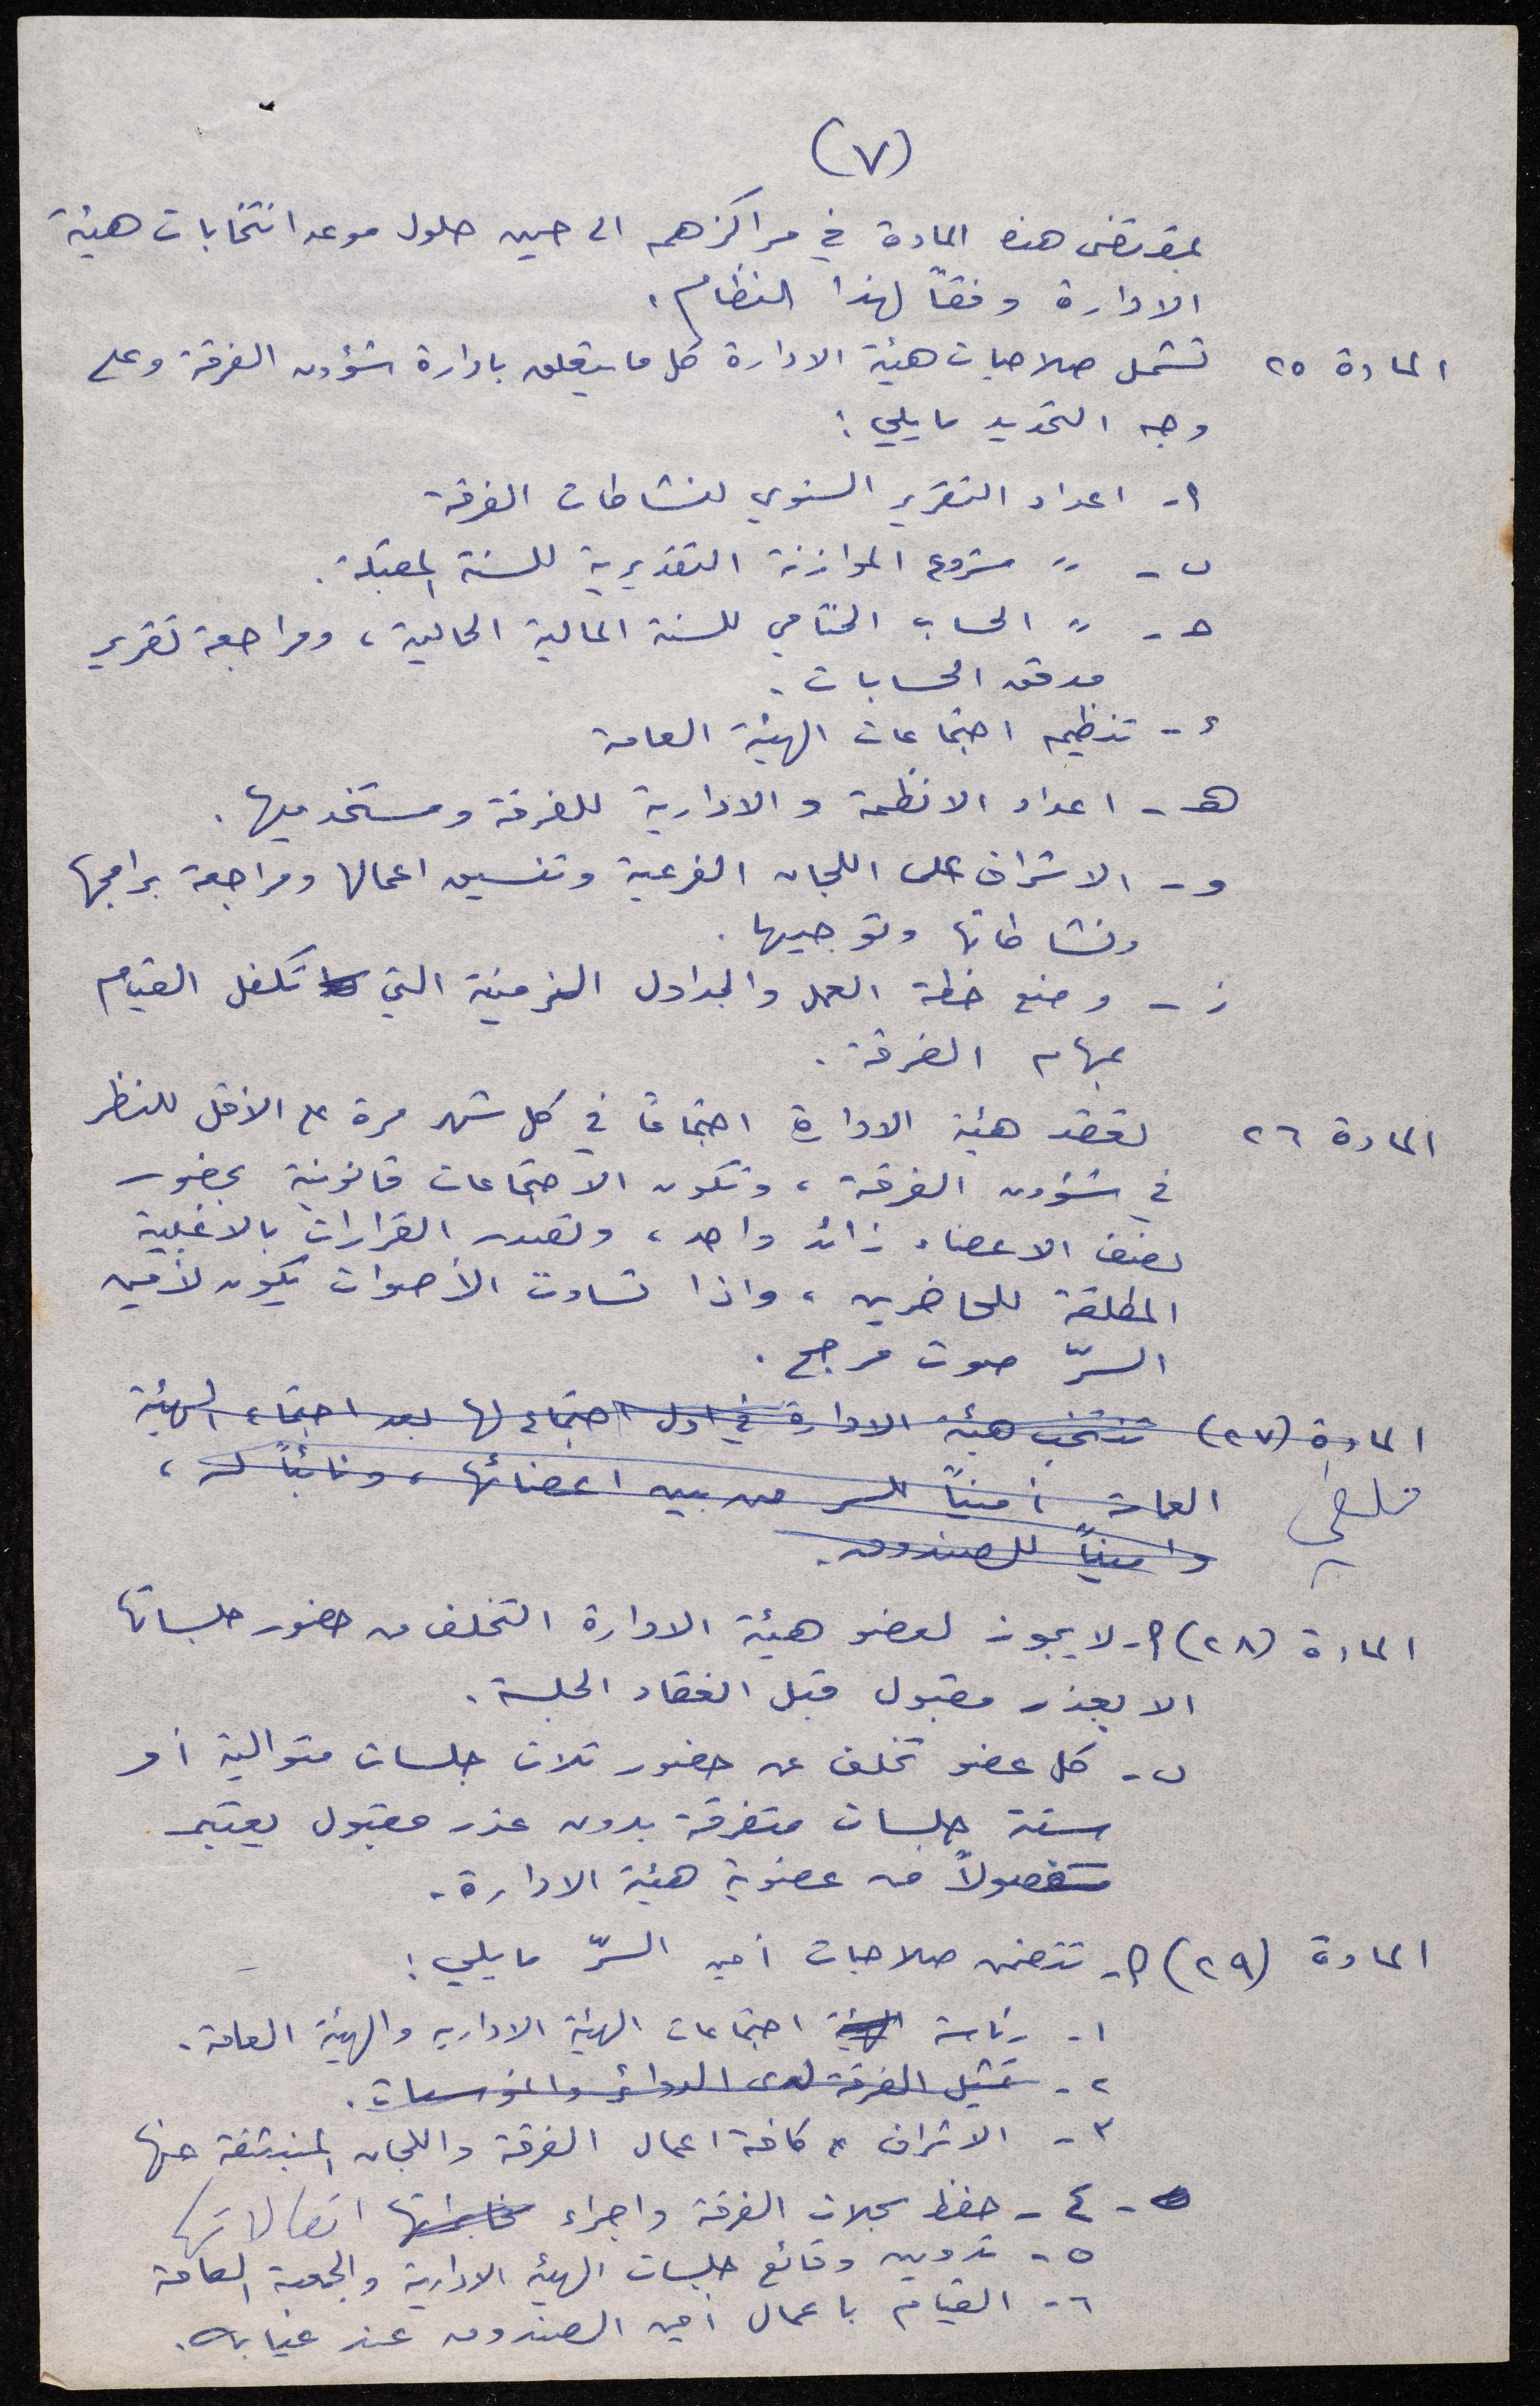 (٧)
بمقتضى هذه المادة في مراكزهم الى حين حلول موعد انتخابات هيئة
الادارة وفقاً لهذا النظام.
المادة ٢٥ تشمل صلاحيات هيئة الادارة كل ما يتعلق بادارة شؤون الفرقة وعلى
وجه التحديد ما يلي:
أ- اعداد التقرير السنوي لنشاطات الفرقة
ب- " مشروع الموازنة التقديرية للسنة المقبلة.
حـ- " الحساب الختامي للسنة المالية الحالية، ومراجعة تقرير
مدقق الحسابات.
د- تنظيم اجتماعات الهيئة العامة
هـ- اعداد الانظمة و الادارية للفرقة ومستخدميها.
و- الاشراف على اللجان الفرعية وتنسيق اعمالها ومراجعة برامجها
ونشاطاتها وتوجيهها.
ز- وضع خطة العمل والجداول الزمنية التي تكفل القيام
بمهام الفرقة.
المادة ٢٦ تعقد هيئة الادارة اجتماعاً في كل شهر مرة على الأقل للنظر
في شؤون الفرقة، وتكون الاجتماعات قانونية بحضور
نصف الاعضاء زائد واحد، وتصدر القرارات بالاغلبية
المطلقة للحاضرين، واذا تساوت الأصوات يكون لأمين
السرّ صوت مرجح.
المادة (٢٧) تنتخب هيئة الادارة في اول اجتماع لها بعد اجتماع الهيئة
العامة أميناً للسر من بين اعضائها، ونائباً له،
وأميناً للصندوق.
المادة (٢٨) أ- لا يجوز لعضو هيئة الادارة التخلف من حضور جلساتها
الا بعذر مقبول قبل انعقاد الجلسة.
ب- كل عضو تخلف عن حضور ثلاث جلسات متوالية أو
ستة جلسات متفرقة بدون عذر مقبول يعتبر
مفصولاً من عضوية هيئة الادارة.
المادة (٢٩) أ- تتضمن صلاحيات أمين السرّ ما يلي:
١- رئاسة الهيئة اجتماعات الهيئة الادارية والهيئة العامة.
٢- تمثيل الفرقة لدى الدوائر والمؤسسات.
٣- الاشراف كافة اعمال الفرقة واللجان المنبثقة عنها
٤- حفظ سجلات الفرقة واجراء اتصالاتها
٥- تدوين وقائع جلسات الهيئة الادارية والجمعية العامة
٦- القيام باعمال أمين الصندوق عند غيابه.